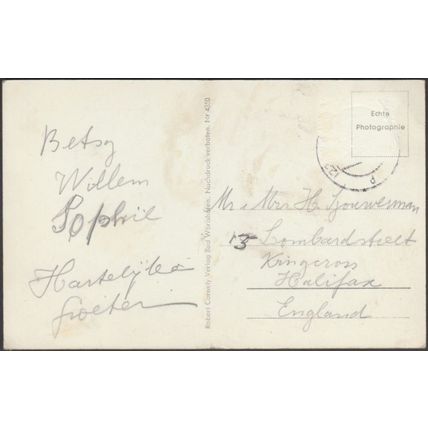 Betsy
Willem
Sophie
Hartelijke
Groeten
Robert Connély Verlag Bad Wörishofen. Nachdruck verboten. Nr 4350
Echte
Photographie
Mr & Mrs H Bouwerman
13 Lombardstreet
Kingcross
Halifax
England